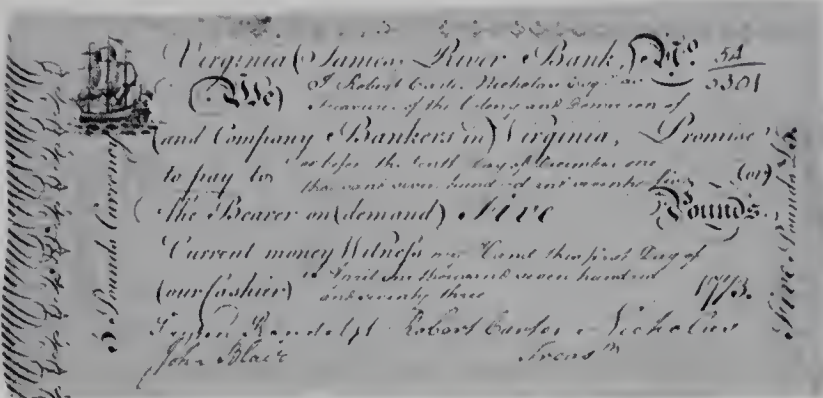 Virginia (James River Bank,) No. 54
5301
(We) I Robert Carter Nicholas Esqr. as
Treasurer of the Colony and Dominion of
(and Company Bankers in) Virginia, Promise
to pay to on or before the tenth Day of December one (or)
thousand seven hundred and seventy five
(the Bearer on demand) Five Pounds.
Current money Witness my Hand this first Day of
(our Cashier) April one thousand seven hundred
and seventy three 1773.
Peyton Randolph Robert Carter Nicholas
John Blair Treasr.
5 Pounds Currency
Five Pounds